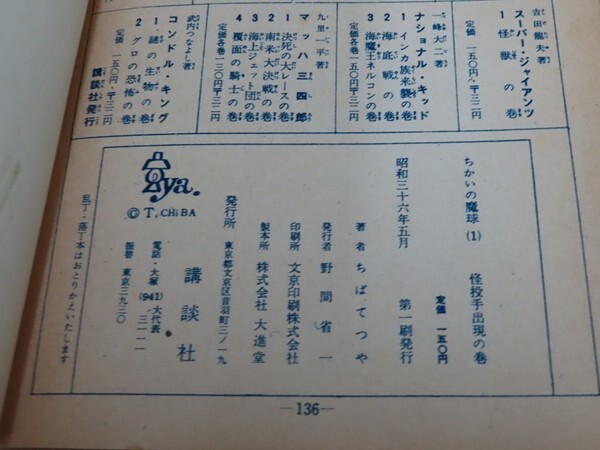 吉田龍夫著
スーパー・ジャイアンツ
1 怪獣の巻
定価 一五〇円・〒三二円
一峰大二著
ナショナル・キッド
1 インカ族来襲の巻
2 海底戦の巻
3 海魔王ネルコンの巻
定価各巻一三〇円〒三二円
九里一平著
マッハ三四郎
1 決死の大レースの巻
2 南米大決戦の巻
3 海上ジェット団の巻
4 覆面の騎士の巻
定価各巻一三〇円〒三二円
武内つなよし著
コンドル・キング
1 謎の生物の巻
2 グロの恐怖の巻
定価 一五〇円・〒三二円
講談社発行
ちかいの魔球 (1) 怪投手出現の巻
定価 一五〇円
昭和三十六年五月 第一刷発行
著者 ちばてつや
発行者 野間省一
印刷所 文京印刷株式会社
製本所 株式会社大進堂
発行所 東京都文京区音羽町三ノ一九
講談社
電話・大塚 (941) 大代表 三一一一
振替 東京三九三〇
ya.
© T. CHiBA
乱丁・落丁本はおとりかえいたします
—136—